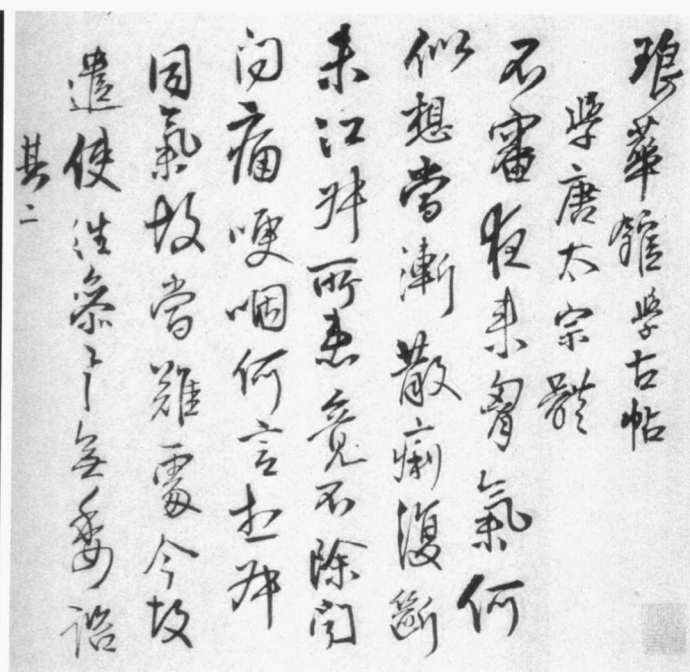 琅華館學古帖
學唐太宗體
不審夜來胸氣何
似想當漸散痢復斷
未江叔所患竟不除聞
問痛哽咽何言想叔
因氣故當難處今故
遣使往參委
其二